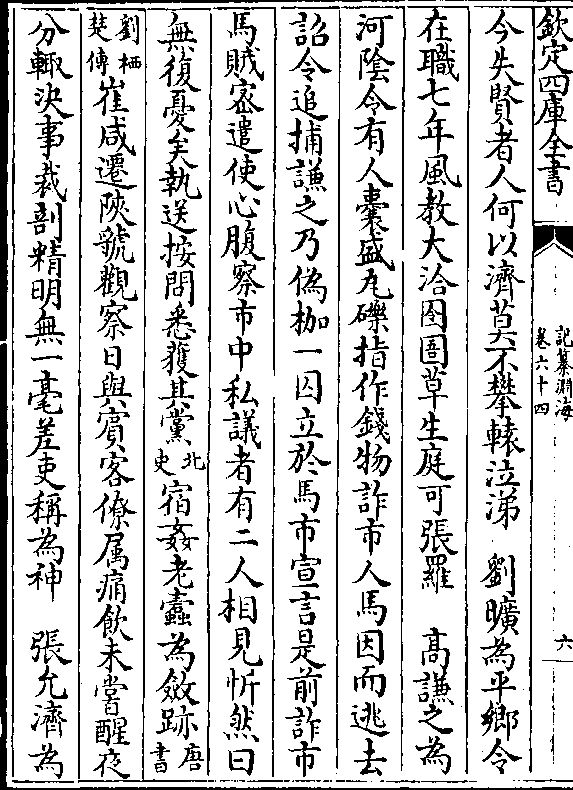 欽定四庫全書
記纂淵海
卷六十四
六
今失賢者人何以濟莫不攀轅泣涕　劉曠為平鄉令
在職七年風教大洽囹圄草生庭可張羅　高謙之為
河陰令有人囊盛瓦礫指作錢物詐市人馬因而逃去
詔令追捕謙之乃偽枷一囚立於馬市宣言是前詐市
馬賊宻遣使心腹察市中私議者有二人相見忻然曰
無復憂矣執送按問悉獲其黨北史　宿姦老蠧為斂跡唐書
劉栖楚傳　崔咸遷陜虢觀察日與賓客僚屬痛飲未嘗醒夜
分輙決事裁剖精明無一毫差吏稱為神　張允濟為